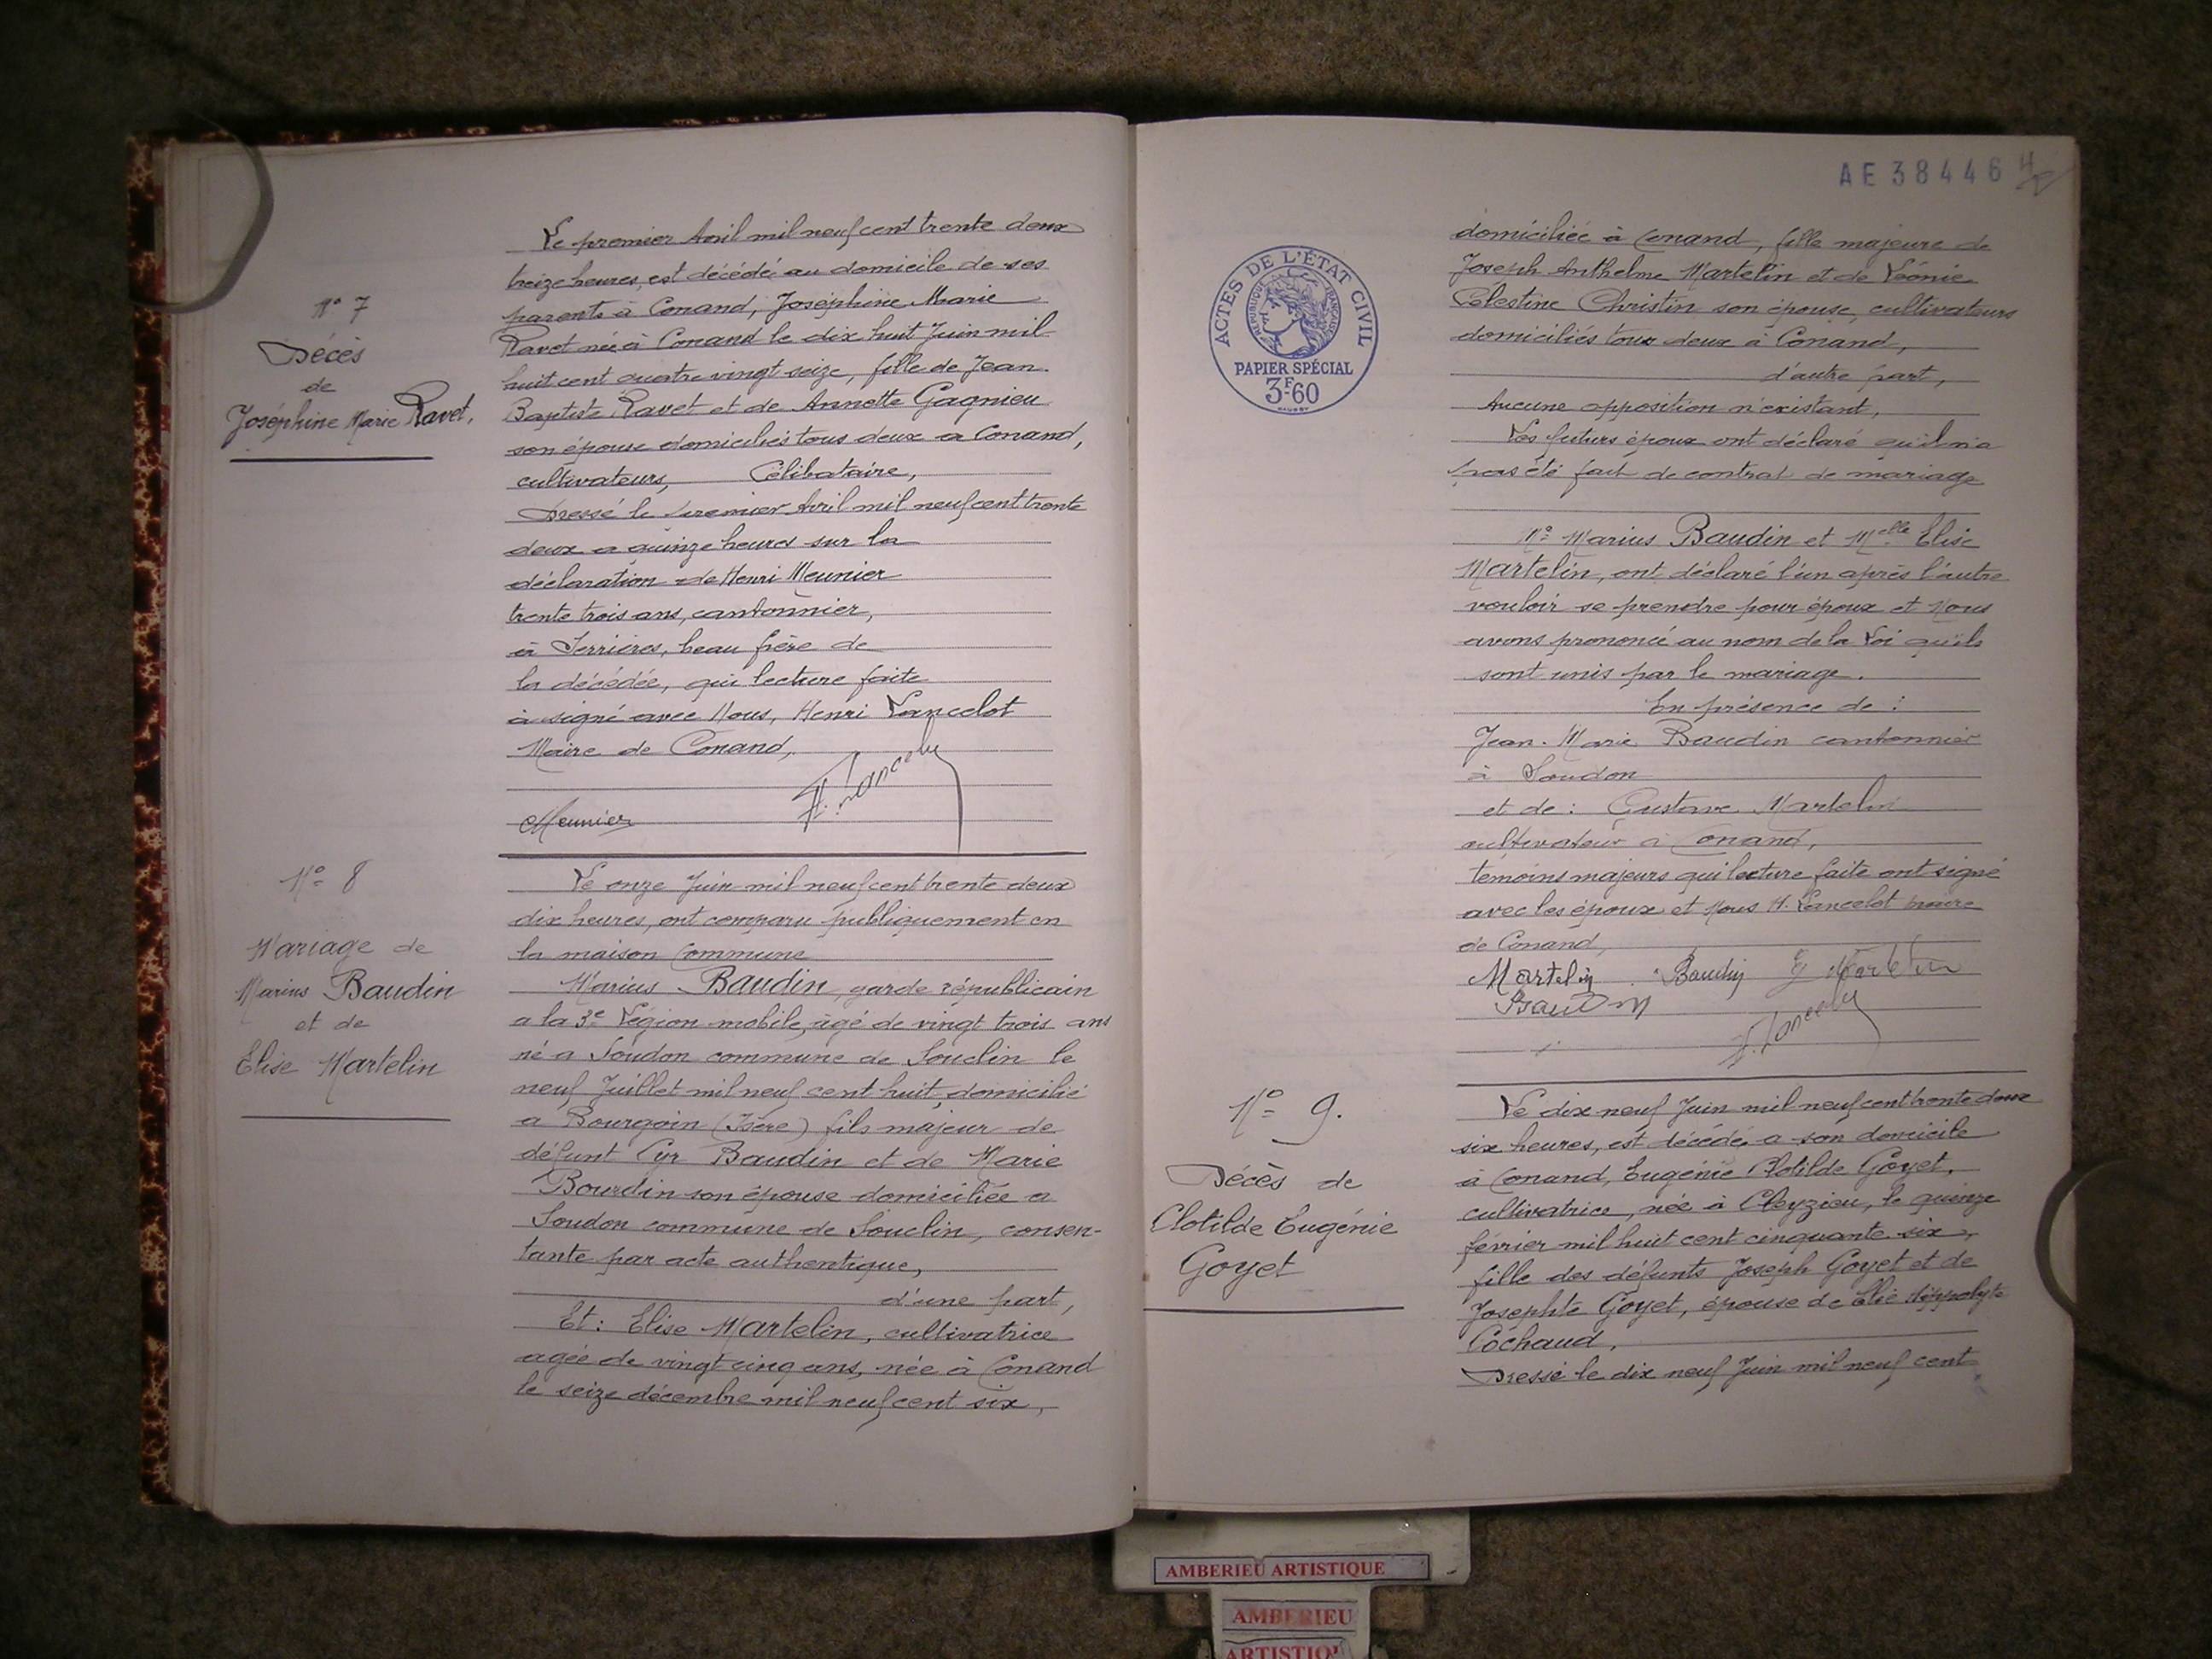 N° 7
Décès
de
Joséphine Marie Ravet,
Le premier Avril mil neuf cent trente deux
treize heures, est décédé au domicile de ses
parents à Conand, Joséphine Marie
Ravet née à Conand le dix huit Juin mil
huit cent quatre vingt seize, fille de Jean
Baptiste Ravet et de Annette Gagnieu
son épouse domiciliés tous deux a Conand,
cultivateurs, Célibataire,
Dressé le premier Avril mil neuf cent trente
deux a quinze heures sur la
déclaration de Henri Meunier
trente trois ans, cantonnier,
à Serrières, beau frère de
la décédée, qui lecture faite
à signé avec Nous, Henri Lancelot
Maire de Conand,
H. Lancelot
Meunier
N° 8
Mariage de
Marius Baudin
et de
Elise Martelin
Le onze Juin mil neuf cent trente deux
dix heures, ont comparu publiquement en
la maison commune
Marius Baudin, garde républicain
a la 3e Légion mobile, âgé de vingt trois ans
né a Soudon commune de Souclin le
neuf Juillet mil neuf cent huit, domicilié
a Bourgoin (Isère) fils majeur de
défunt Cyr Baudin et de Marie
Bourdin son épouse domiciliée a
Soudon commune de Souclin, consen-
tante par acte authentique,
d'une part,
Et: Elise Martelin, cultivatrice
agée de vingt cinq ans, née à Conand
le seize décembre mil neuf cent six,
AE 38446
ACTES DE L'ÉTAT CIVIL
RÉPUBLIQUE FRANÇAISE
PAPIER SPÉCIAL
3F60
domiciliée à Conand, fille majeure de
Joseph Anthelme Martelin et de Léonie
Célestine Christin son épouse, cultivateurs
domiciliés tous deux à Conand,
d'autre part,
Aucune opposition n'existant,
Les futurs époux ont déclaré qu'il n'a
pas été fait de contrat de mariage
Mr Marius Baudin et Melle Elise
Martelin, ont déclaré l'un après l'autre
vouloir se prendre pour époux et Nous
avons prononcé au nom de la Loi qu'ils
sont unis par le mariage.
En présence de :
Jean-Marie Baudin cantonnier
à Soudon
et de : Gustave Martelin
cultivateur à Conand,
témoins majeurs qui lecture faite ont signé
avec les époux et Nous H. Lancelot maire
de Conand,
Martelin Baudin G Martelin
Baudin
H. Lancelot
N° 9.
Décès de
Clotilde Eugénie
Goyet
Le dix neuf Juin mil neuf cent trente deux
six heures, est décédée a son domicile
à Conand, Eugénie Clotilde Goyet,
cultivatrice, née à Cleyzieu, le quinze
février mil huit cent cinquante six,
fille des défunts Joseph Goyet et de
Josephte Goyet, épouse de Elie Hippolyte
Cochaud,
Dressé le dix neuf Juin mil neuf cent
AMBERIEU ARTISTIQUE
AMBERIEU